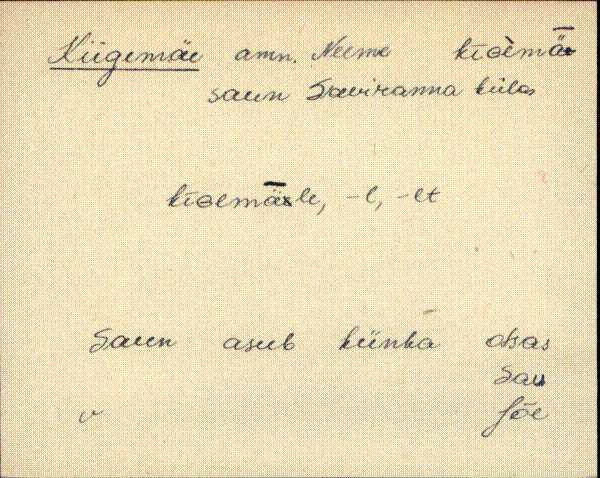 Kiigemäe amn. Neeme kīGèmǟ
saun Saviranna külas
kīGemǟle, -l, -lt
Saun asub künka otsas
Sau
v Jõe